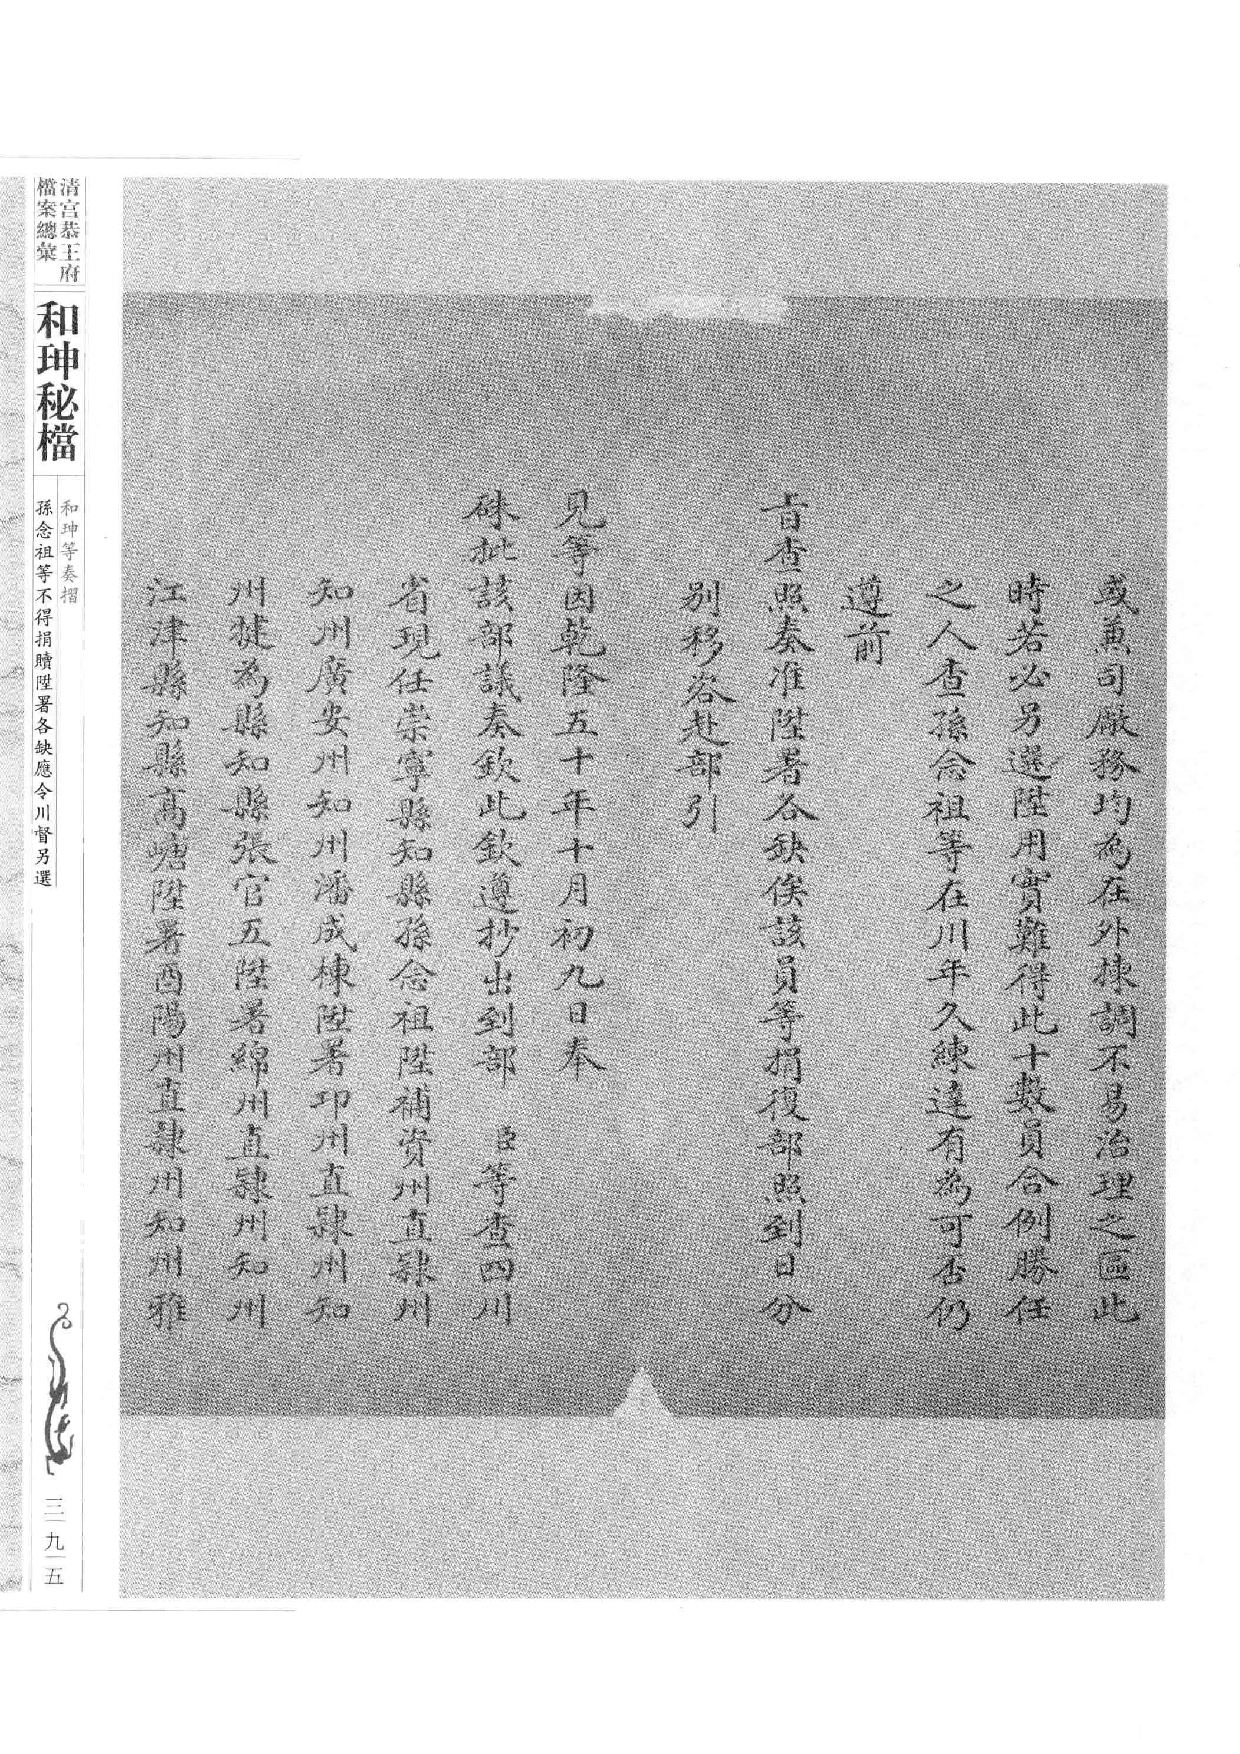 或兼司厰務均為在外揀調不易治理之區此
時若必另選陞用實難得此十數員合例勝任
之人查孫念祖等在川年久練達有為可否仍
遵前
旨查照奏准陞署各缺俟該員等捐復部照到日分
別移咨赴部引
見等因乾隆五十年十月初九日奉
硃批該部議奏欽此欽遵抄出到部臣等查四川
省現任崇寧縣知縣孫念祖陞補資州直隸州
知州廣安州知州潘成棟陞署邛州直隸州知
州犍為縣知縣張官五陞署綿州直隸州知州
江津縣知縣高㙐陞署酉陽州直隸州知州雅
清宮恭王府
檔案總彙
和珅秘檔
和珅等奏摺
孫念祖等不得捐贖陞署各缺應令川督另選
三九五